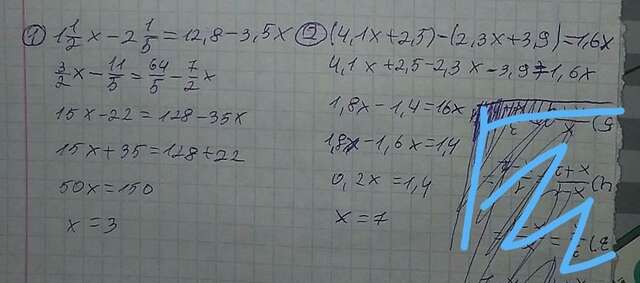 ① 1 1/2 x - 2 1/5 = 12,8 - 3,5x
3/2 x - 11/5 = 64/5 - 7/2 x
15x - 22 = 128 - 35x
15x + 35 = 128 + 22
50x = 150
x = 3
② (4,1x + 2,5) - (2,3x + 3,9) = 1,6x
4,1x + 2,5 - 2,3x - 3,9 = 1,6x
1,8x - 1,4 = 16x
1,8x - 1,6x = 1,4
0,2x = 1,4
x = 7